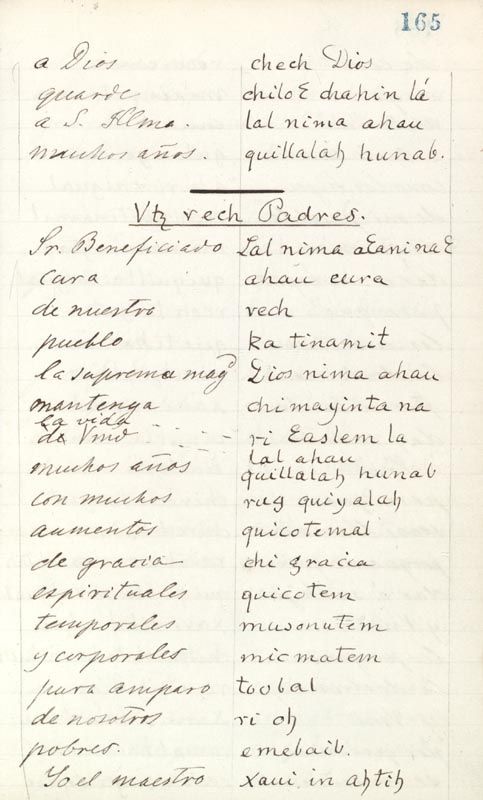 165
a Dios chech Dios
guarde chiloƐ chahin lá
a S. Illma. lal nima ahau
muchos años. quillalaḥ hunab.
Vtꜩ rech Padres.
Sr. Beneficiado Lal nima aƐaninaƐ
Cura ahau cura
de nuestro rech
pueblo ka tinamit
la suprema magd Dios nima ahau
mantenga chi mayinta na
la vida
de Vmd ri Ɛaslem la
lal ahau
muchos años quillalaḥ hunab
con muchos ruq quiyalaḥ
aumentos quicotemal
de gracia chi gracia
espirituales quicotem
temporales musonutem
y corporales micmatem
para amparo toobal
de nosotros ri oḥ
pobres. emebaib.
Yo el maestro xaui in aḥtiḥ